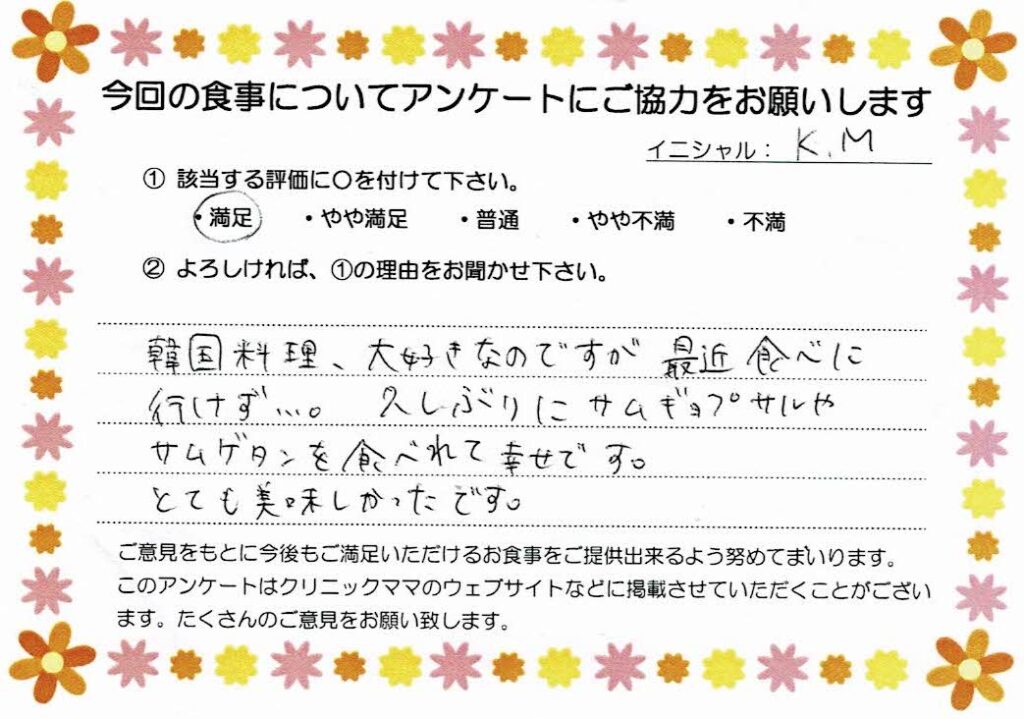 今回の食事についてアンケートにご協力をお願いします
イニシャル： K.M
① 該当する評価に〇を付けて下さい。
・満足 ・やや満足 ・普通 ・やや不満 ・不満
② よろしければ、①の理由をお聞かせ下さい。
韓国料理、大好きなのですが 最近 食べに
行けず…。 久しぶりに サムギョプサルや
サムゲタンを食べれて幸せです。
とても美味しかったです。
ご意見をもとに今後もご満足いただけるお食事をご提供出来るよう努めてまいります。
このアンケートはクリニックママのウェブサイトなどに掲載させていただくことがござい
ます。たくさんのご意見をお願い致します。